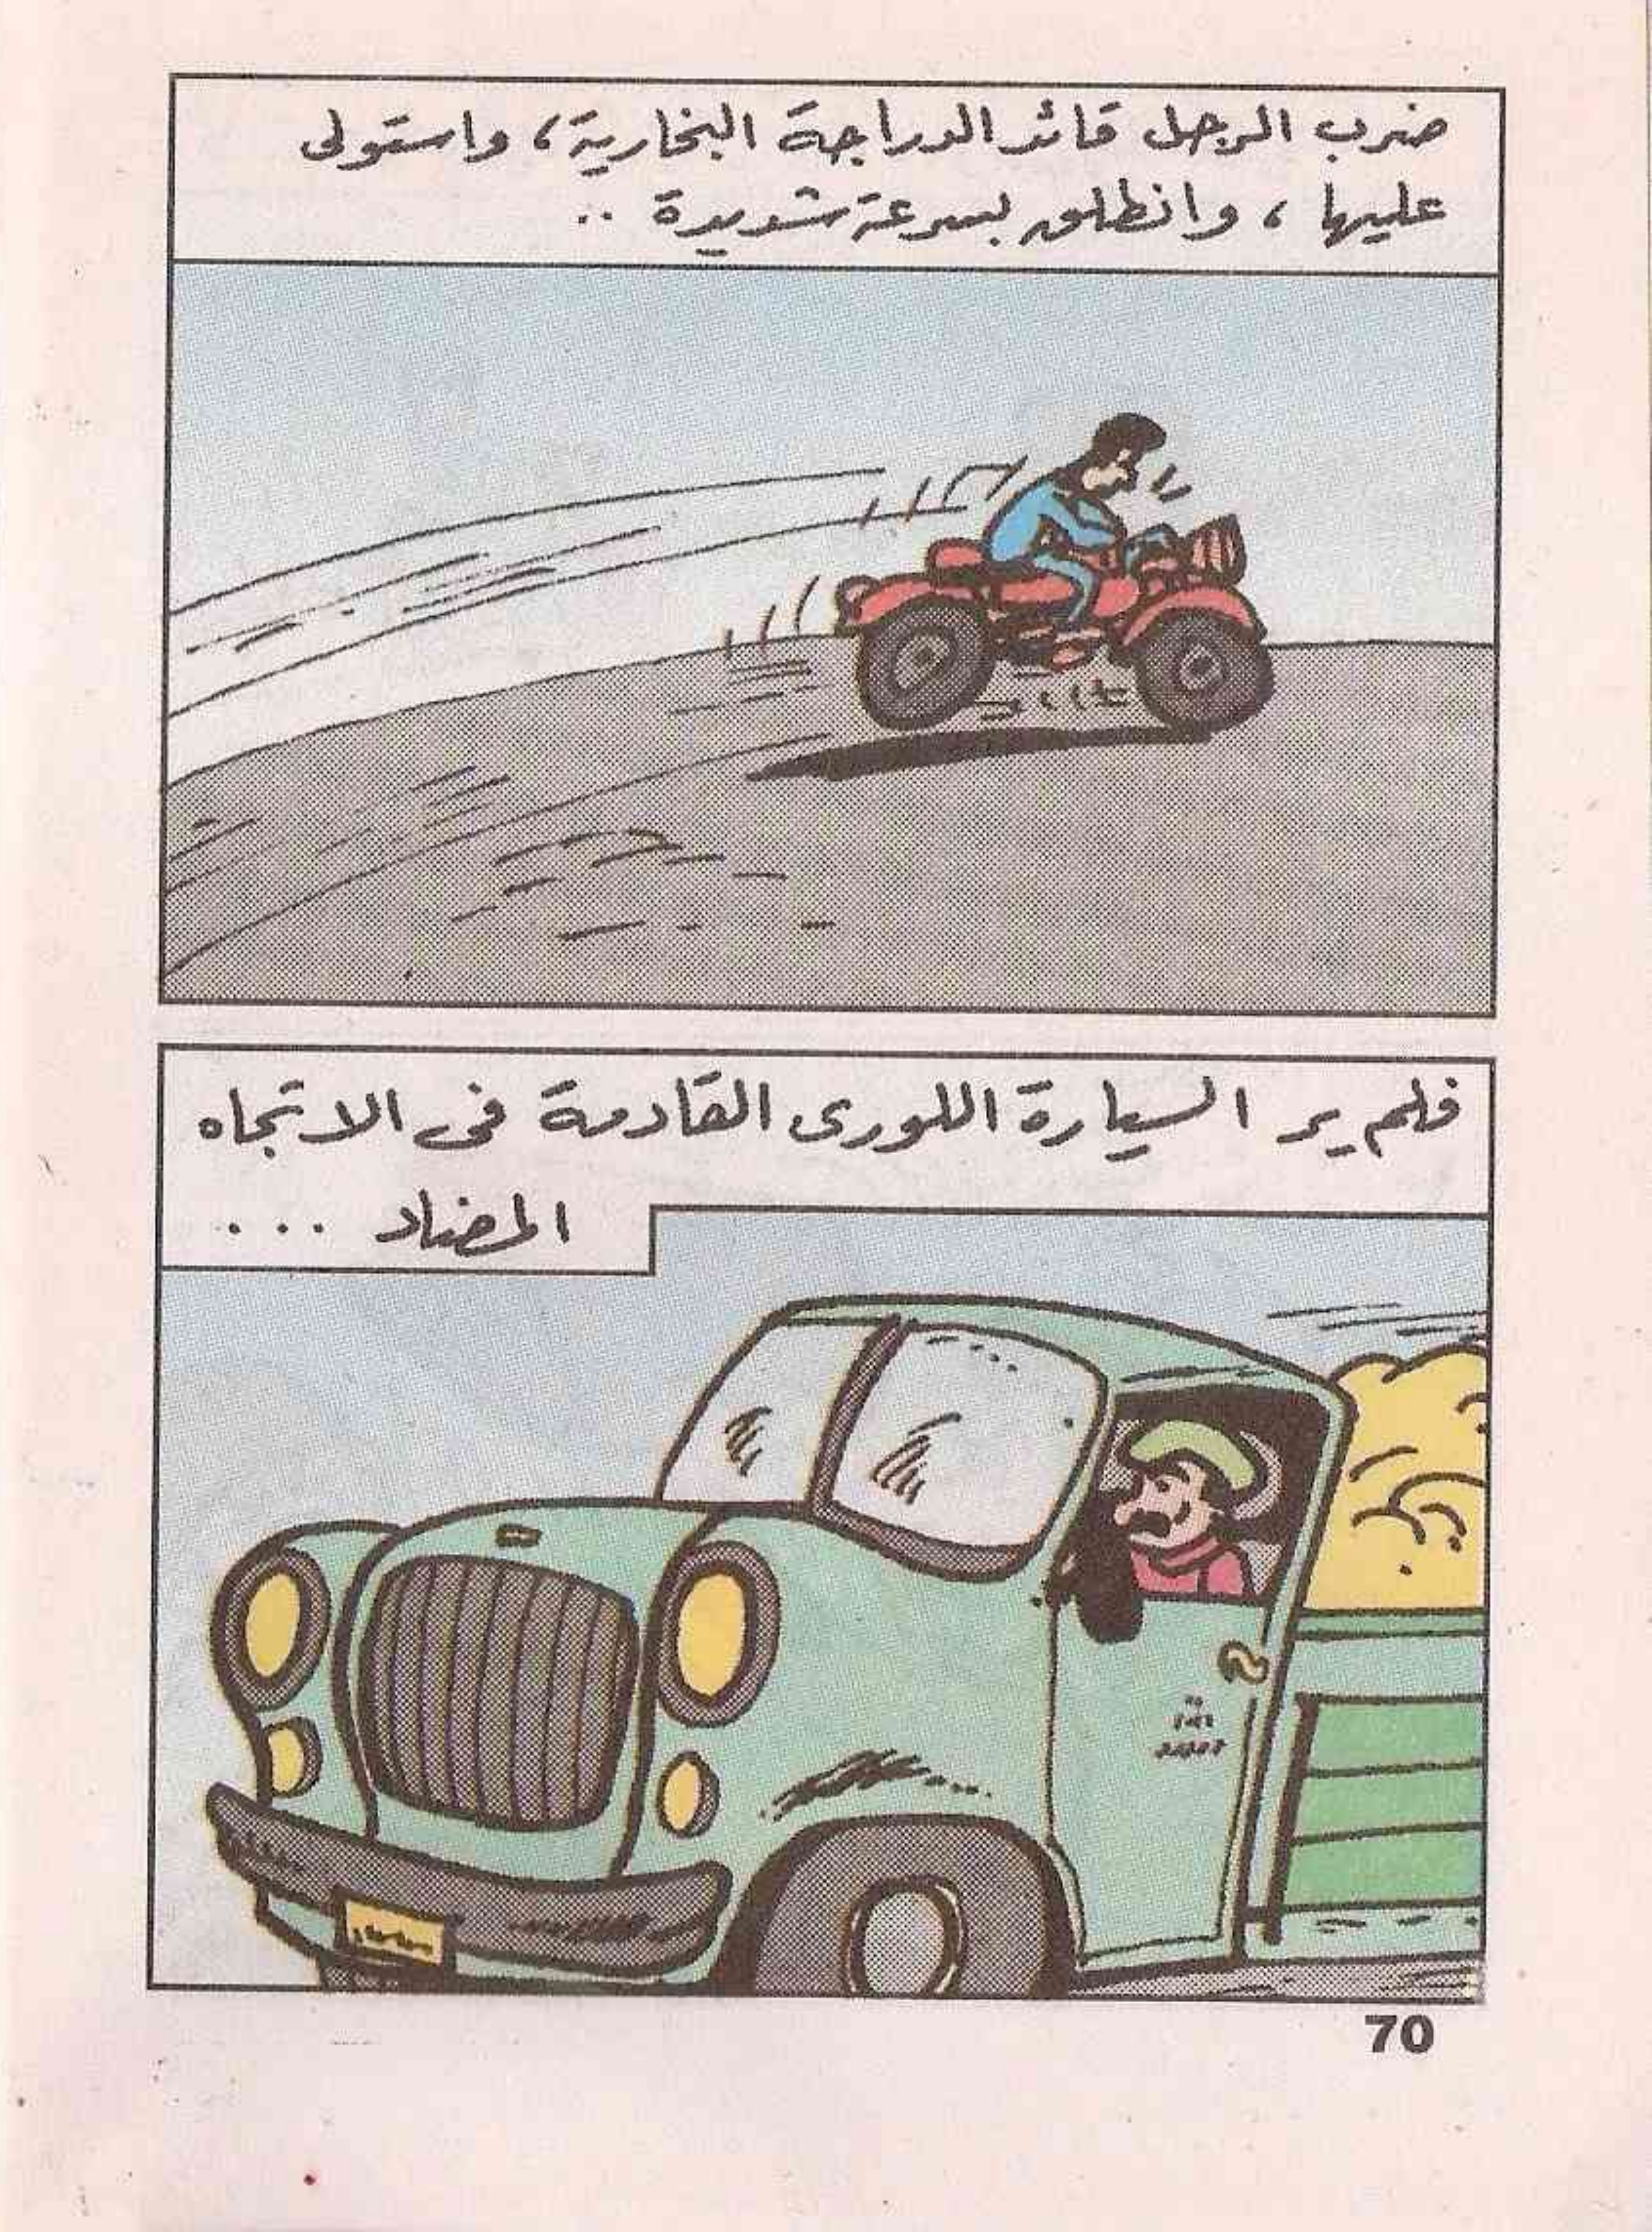 ضرب الرجل قائد الدراجة البخارية، واستولى
عليها، وانطلق بسرعة شديدة ..
فلم ير السيارة اللورى القادمة فى الاتجاه
المضاد ...
70